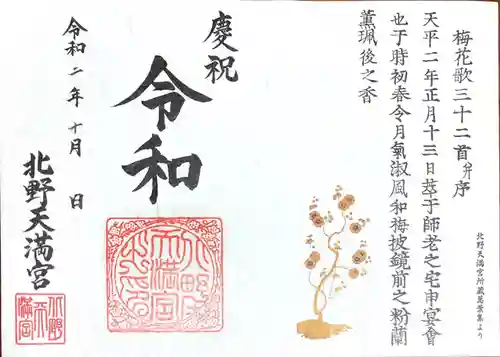 梅花歌三十二首并序
天平二年正月十三日萃于師老之宅申宴會
也于時初春令月氣淑風和梅披鏡前之粉蘭
薫珮後之香
北野天満宮所蔵萬葉集より
慶祝
令和
令和二年十月 日
北野天満宮